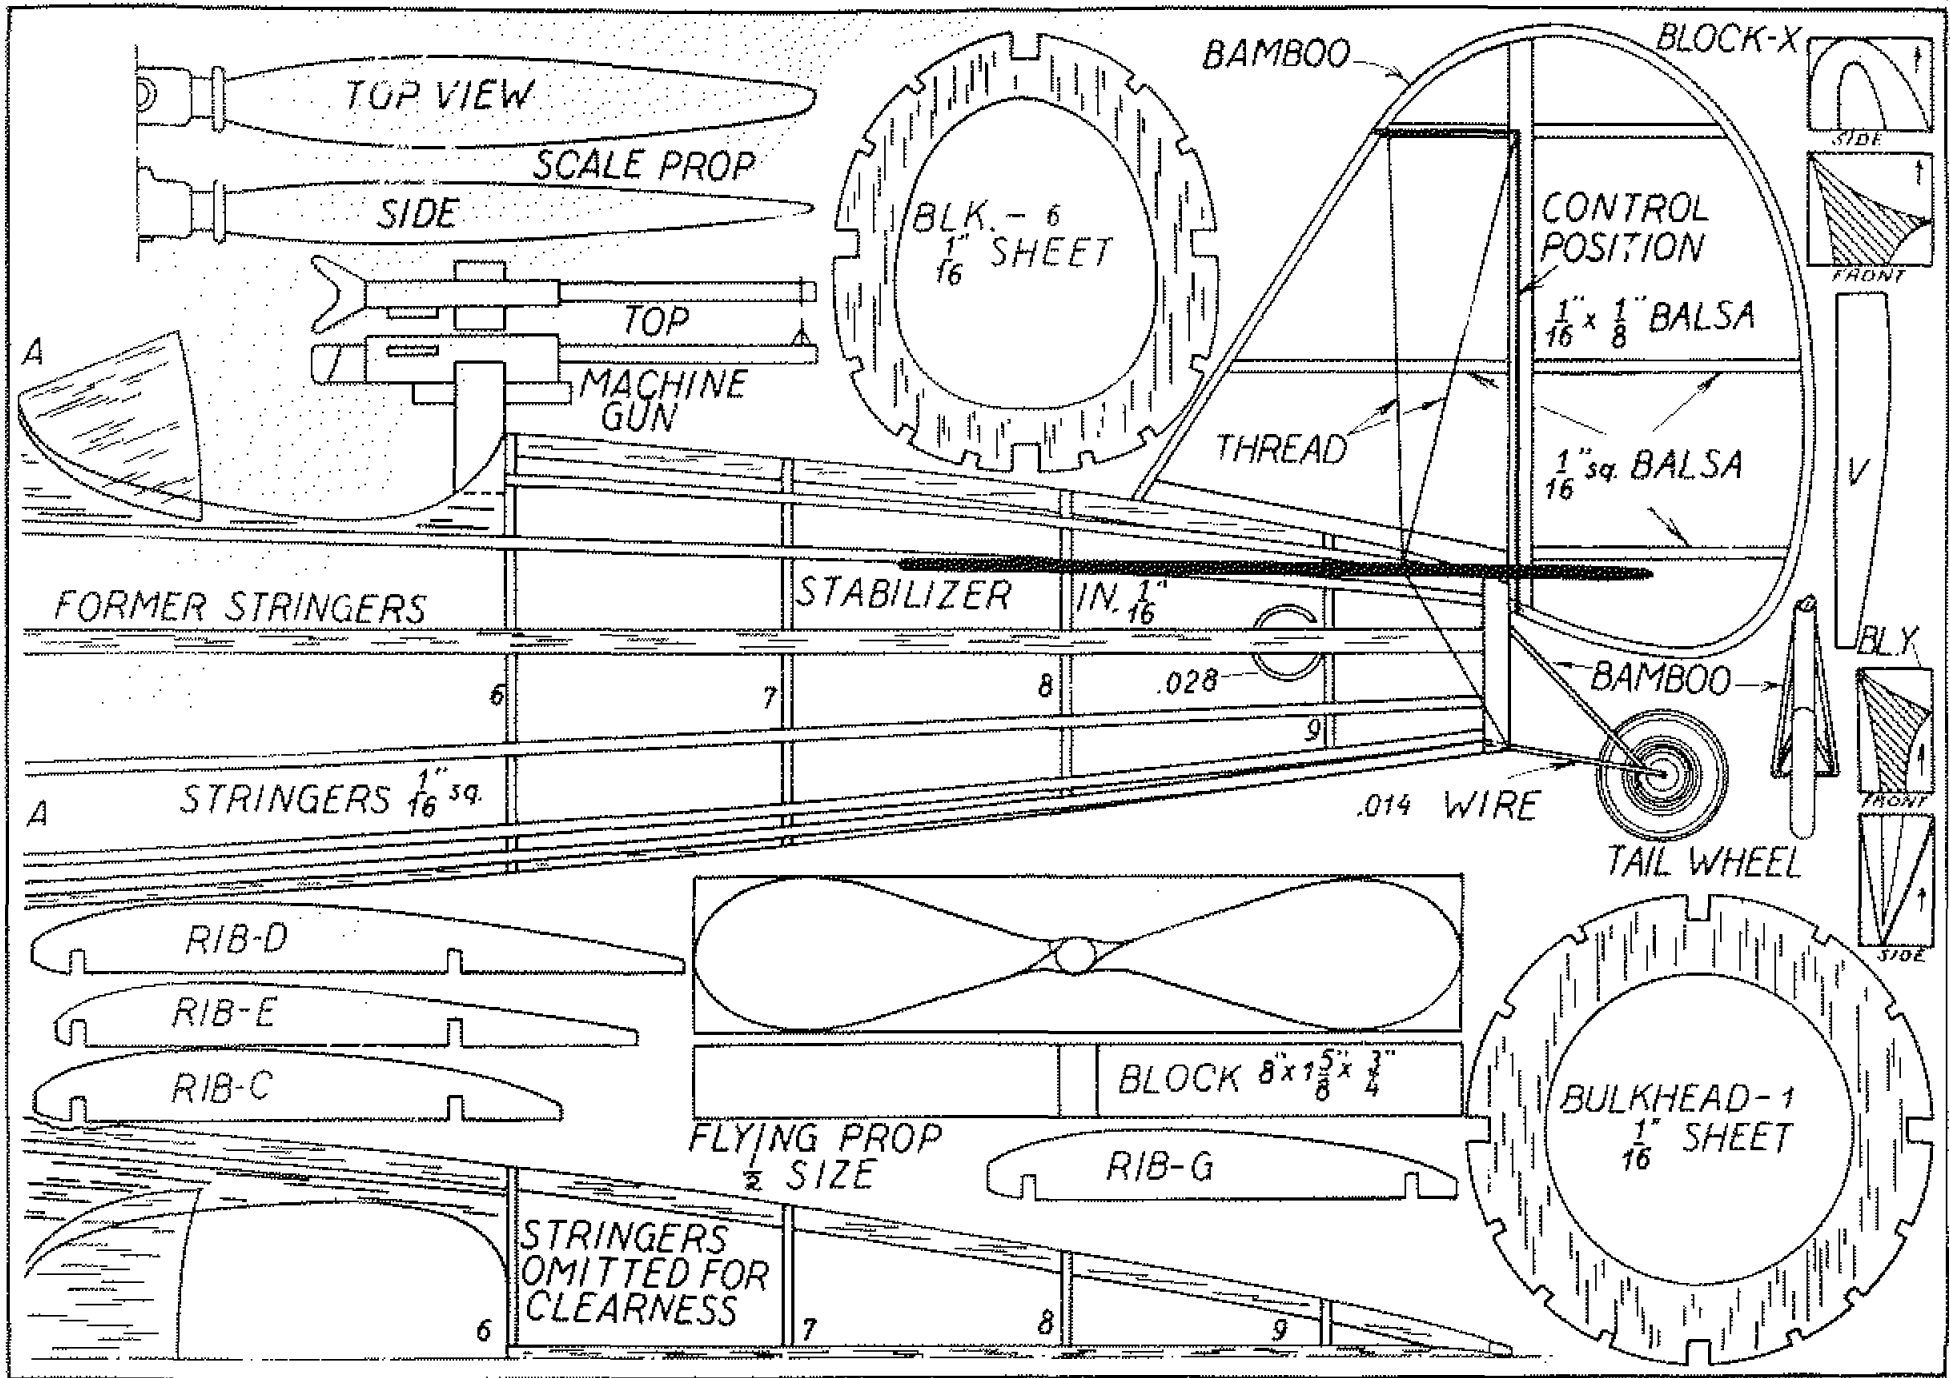 TOP VIEW
SCALE PROP
SIDE
TOP
MACHINE
GUN
BLK. - 6
1/16" SHEET
BAMBOO
BLOCK-X
SIDE
FRONT
CONTROL
POSITION
1/16" x 1/8" BALSA
THREAD
1/16" sq. BALSA
V
A
FORMER STRINGERS
STABILIZER IN. 1/16"
.028
6
7
8
9
BAMBOO
BL.Y.
FRONT
SIDE
STRINGERS 1/16" sq.
A
.014 WIRE
TAIL WHEEL
RIB-D
RIB-E
RIB-C
BLOCK 8" x 1 5/8" x 3/4"
FLYING PROP
1/2 SIZE
RIB-G
BULKHEAD-1
1/16" SHEET
STRINGERS
OMITTED FOR
CLEARNESS
6
7
8
9